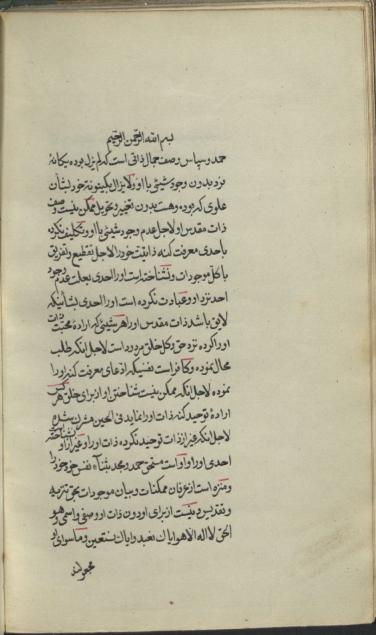 بسم الله الرحمن الرحیم
حمد و سپاس وصف جمال ذاتی است که لم یزل بوده یکانهٔ
نزد بدون وجود شیئی با او و لا یزال بکینونة خود بشأن
علوی که بوده و هست بدون تغییر و تحویل ممکن نیست وصف
ذات مقدس او لاجل عدم وجود شیئی با او و تکلیف نکرده
باحدی معرفت کنه ذاتیت خود را لاجل تقطیع و تفریق
با کل موجودات و نشناخته است او را احدی بعلت عدم وجود
احد نزد او و عبادت نکرده است او را احدی بشأنیکه
لایق باشد ذات مقدس او را هر شیئی که ارادهٔ محبت ذات
او را کرده نزد حق و کل خلق مردود است لاجل آنکه طلب
محال نموده و کافر است نفسیکه ادعای معرفت کنه او را
نموده لاجل آنکه ممکن نیست شناختن او از برای خلق هر کس
ارادهٔ توحید کنه ذات او را نماید فی الحین مشرک
لاجل آنکه غیر از ذات توحید نکرده ذات او را و غیر از او
احدی او را و او است مستحق حمد و مجد بثناء نفس خود خود را
و منزه است از عرفان ممکنات و بیان موجودات بحق تنزیه
و تقدیس و نیست از برای او دون ذات او وصفی و اسمی و هو
الحق لا اله الا هو ایاک نعبد و ایاک نستعین و ما سوای او